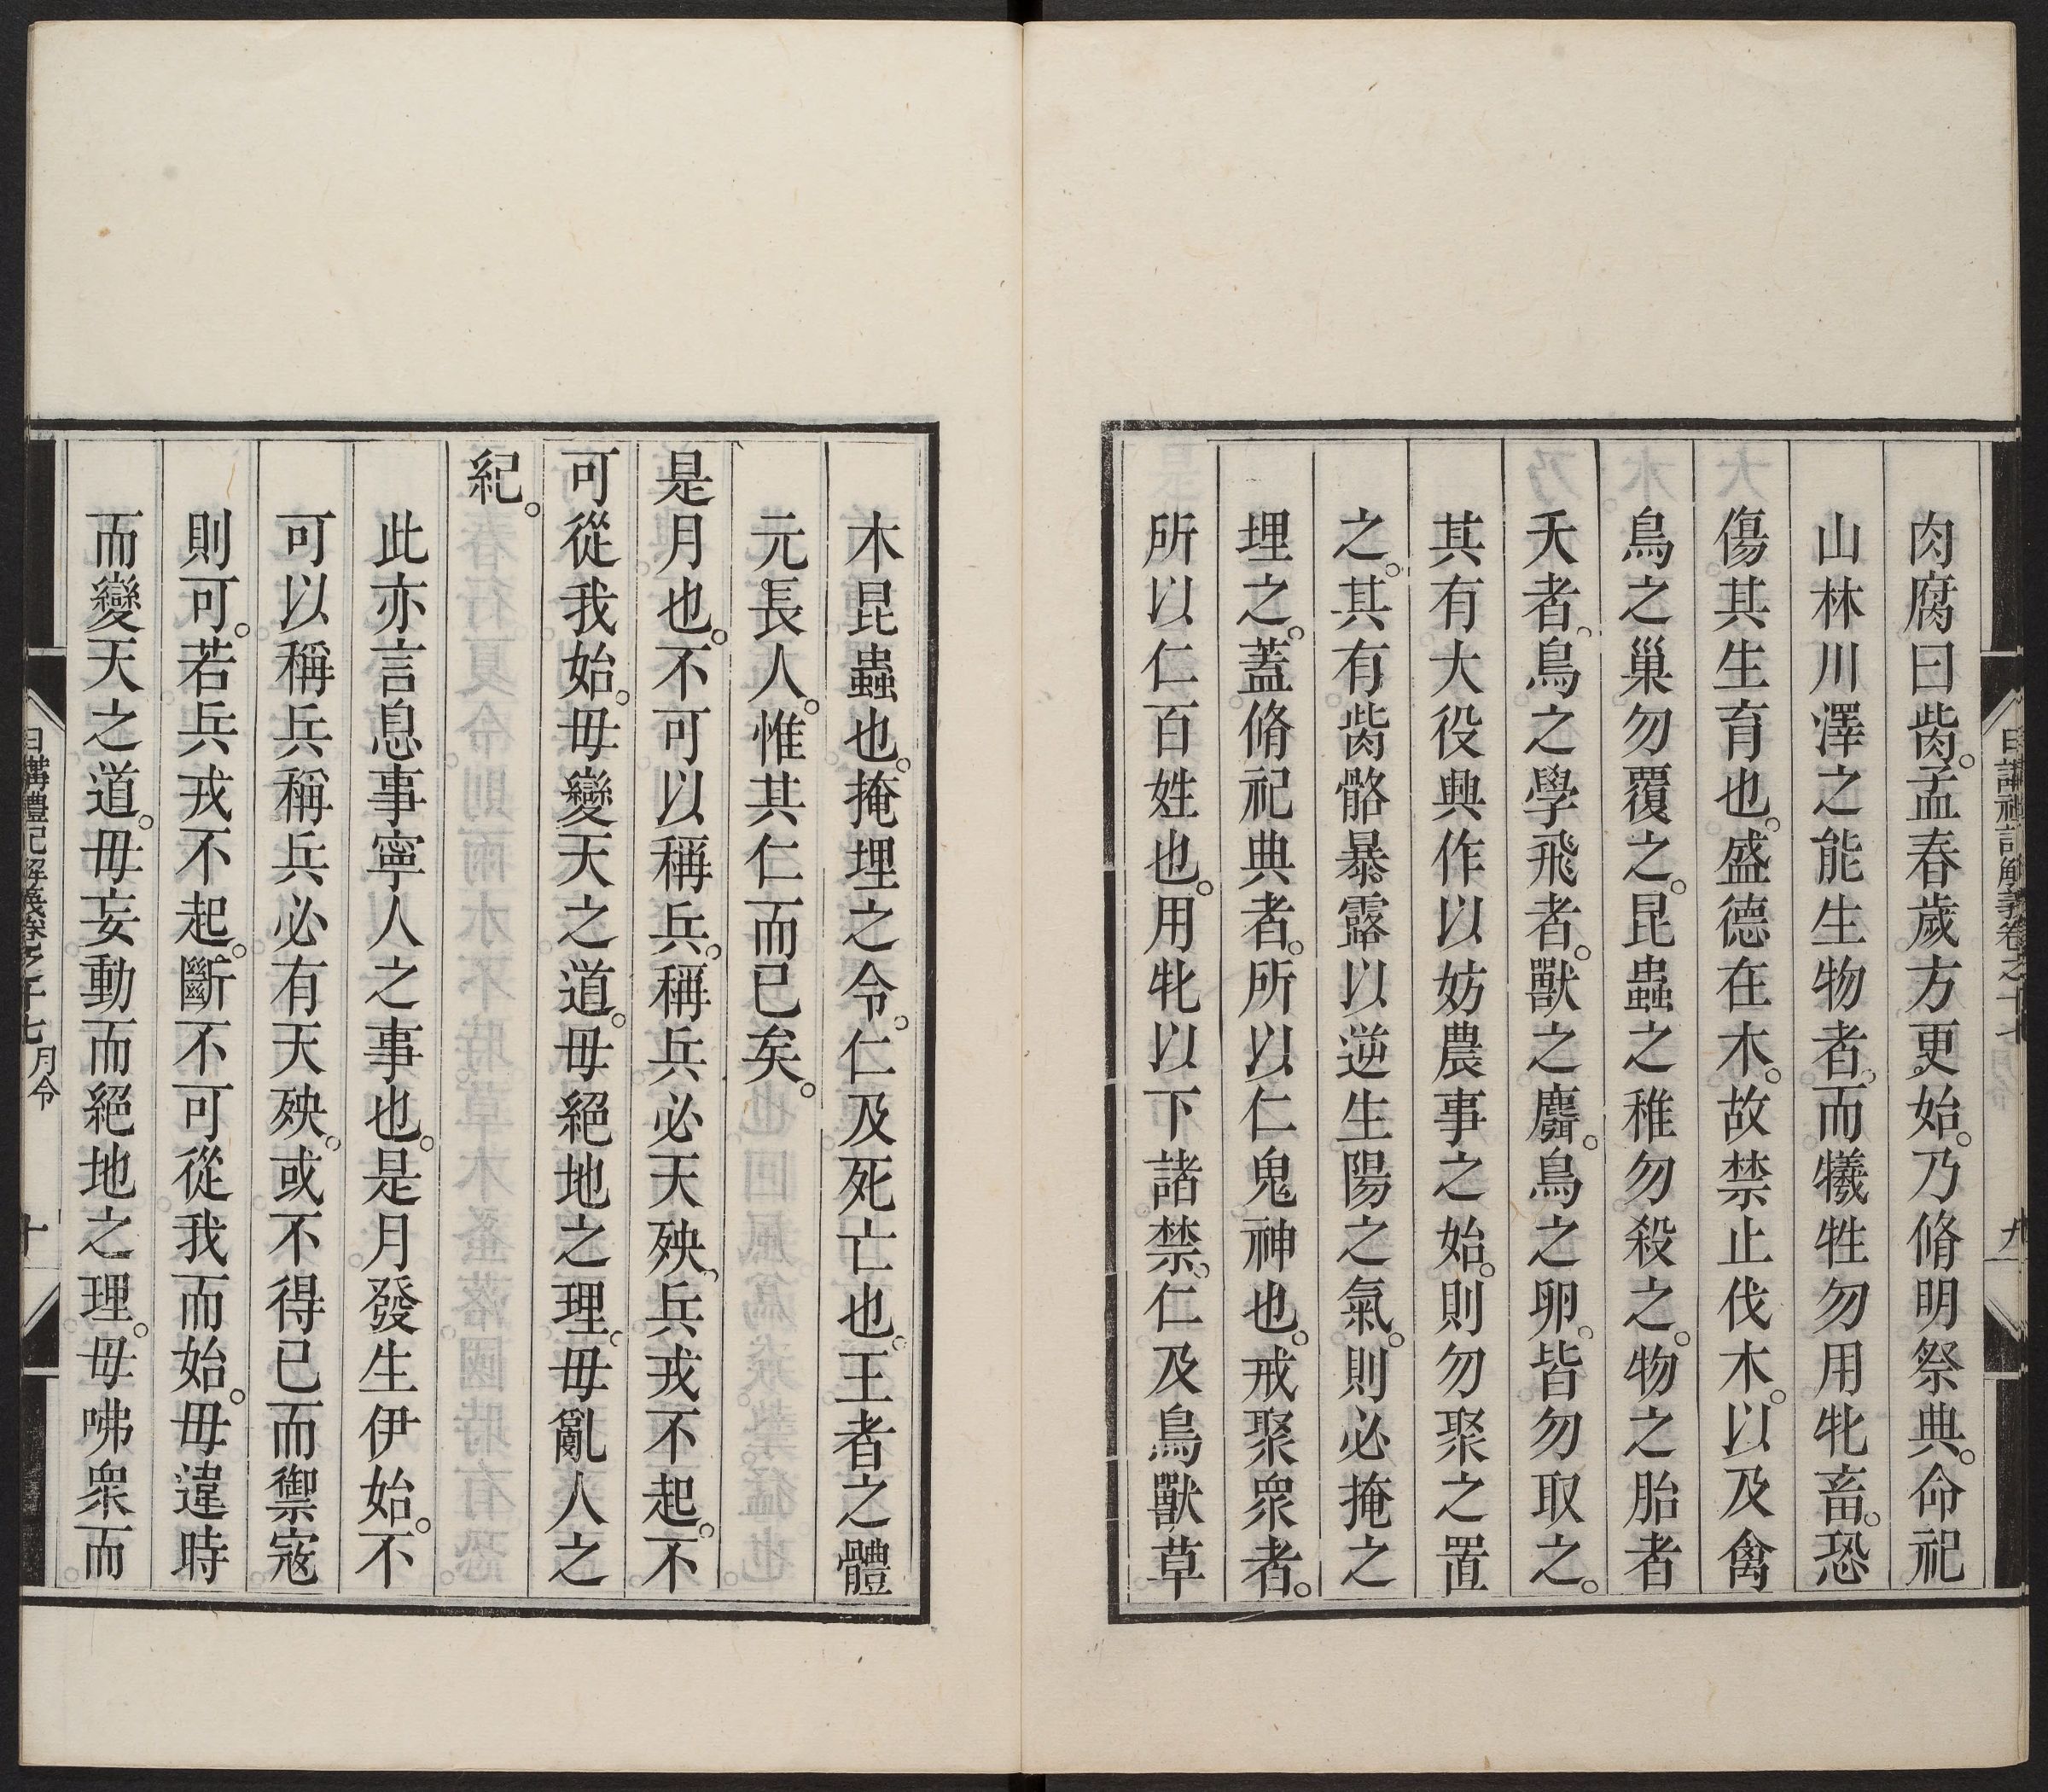 肉腐曰胔。孟春歲方更始。乃脩明祭典。命祀
山林川澤之能生物者。而犧牲勿用牝畜。恐
傷其生育也。盛德在木。故禁止伐木。以及禽
鳥之巢勿覆之。昆蟲之稚勿殺之。物之胎者
夭者。鳥之學飛者。獸之麛。鳥之卵。皆勿取之。
其有大役興作以妨農事之始。則勿聚之置
之。其有胔骼暴露以逆生陽之氣。則必掩之
埋之。蓋脩祀典者。所以仁鬼神也。戒聚眾者。
所以仁百姓也。用牝以下諸禁。仁及鳥獸草
日講禮記解義卷之十七
九
木昆蟲也。掩埋之令。仁及死亡也。王者之體
元長人。惟其仁而已矣。
是月也。不可以稱兵。稱兵必天殃。兵戎不起。不
可從我始。毋變天之道。毋絕地之理。毋亂人之
紀。
此亦言息事寧人之事也。是月發生伊始。不
可以稱兵稱兵必有天殃。或不得已而禦寇
則可。若兵戎不起。斷不可從我而始。毋違時
而變天之道。毋妄動而絕地之理。毋咈眾而
日講禮記解義卷之十七 月令
十